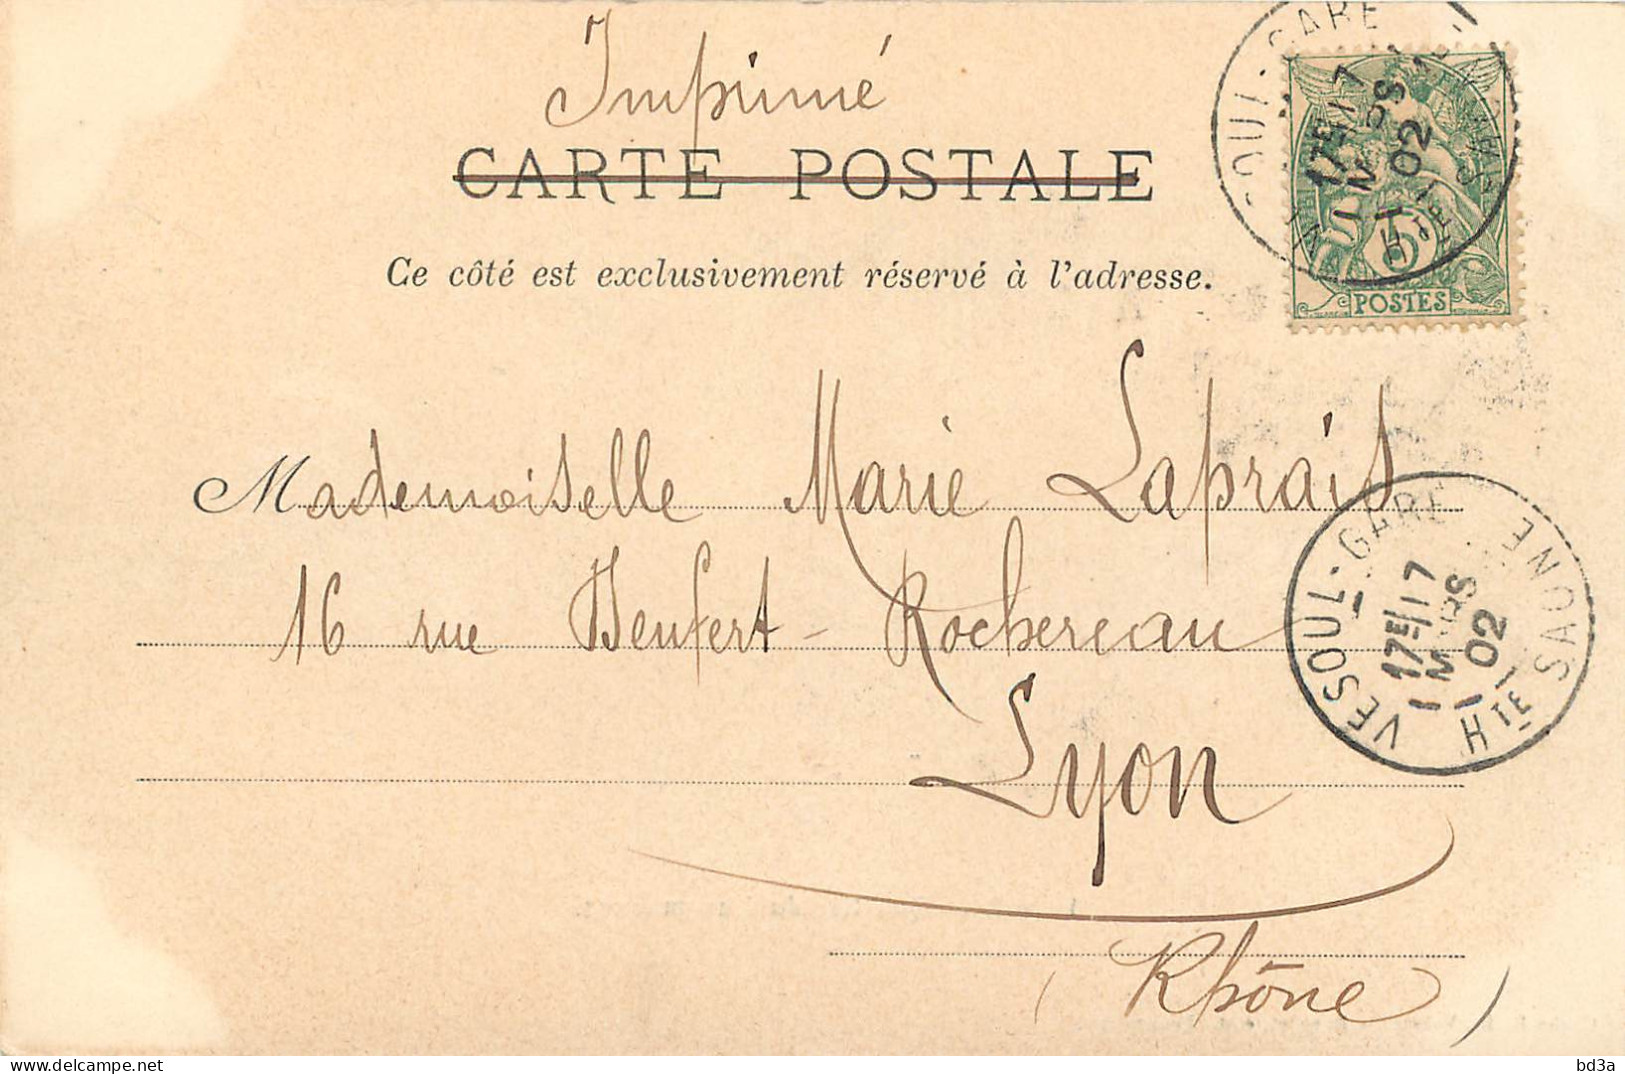 Imprimé
CARTE POSTALE
Ce côté est exclusivement réservé à l'adresse.
5
POSTES
Mademoiselle Marie Laprais
16 rue Denfert-Rochereau
Lyon
(Rhône)
VESOUL-GARE
17E/17
MARS
02
HTE SAONE
www.delcampe.net
bd3a